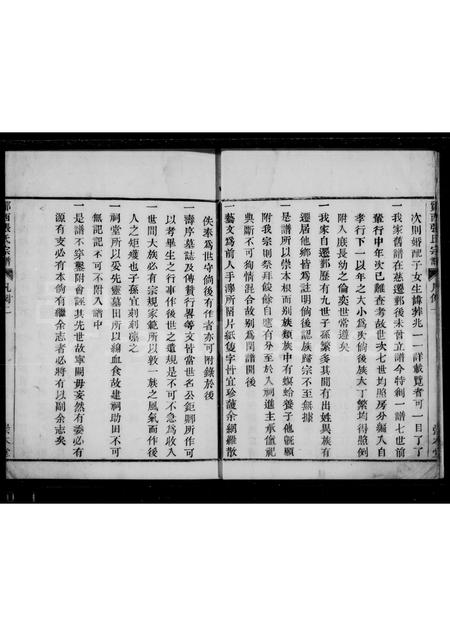 次則婚配子女生諱葬兆一一詳載覽者可一目了了
一我家舊譜在慈遷鄞後未曾立譜今特創一譜七世前
輩行中年次已難查考故世次七世均照房分編入自
孝行下一以年之大小為次倘後族大丁繁均得照倒
附入庶長幼之倫奕世常遵矣
一我家自遷鄞歷有九世子孫繁多其間有出姓異族有
遷居他鄉皆為註明倘後認族歸宗不至無據
一是譜所以崇本根而別族類族中有螟蛉養子他氏願
附我宗則祭拜餕餘自應有分至於入祠進主承值祀
典斷不可徇情混合故別為閏譜開後
一藝文為前人手澤所留片紙隻字忖宜珍護余網羅散
佚奉為世守倘後有作者亦可附錄於後
一壽序墓誌及傳贊行畧等文皆當世名公鉅卿所作可
以考畢生之行事作後世之重規是不可不急為收入
一世間大族必有宗規家範所以敦一族之風氣而作後
人之矩矱也子孫宜刺刺凛之
一祠堂所以妥先靈墓田所以綿血食故建祠助田不可
無記記不可不附入譜中
一是譜不穿鑿附會誣其先世故寧闕毋妄然有委必有
源有支必有本倘有繼余志者必將有以副余志矣